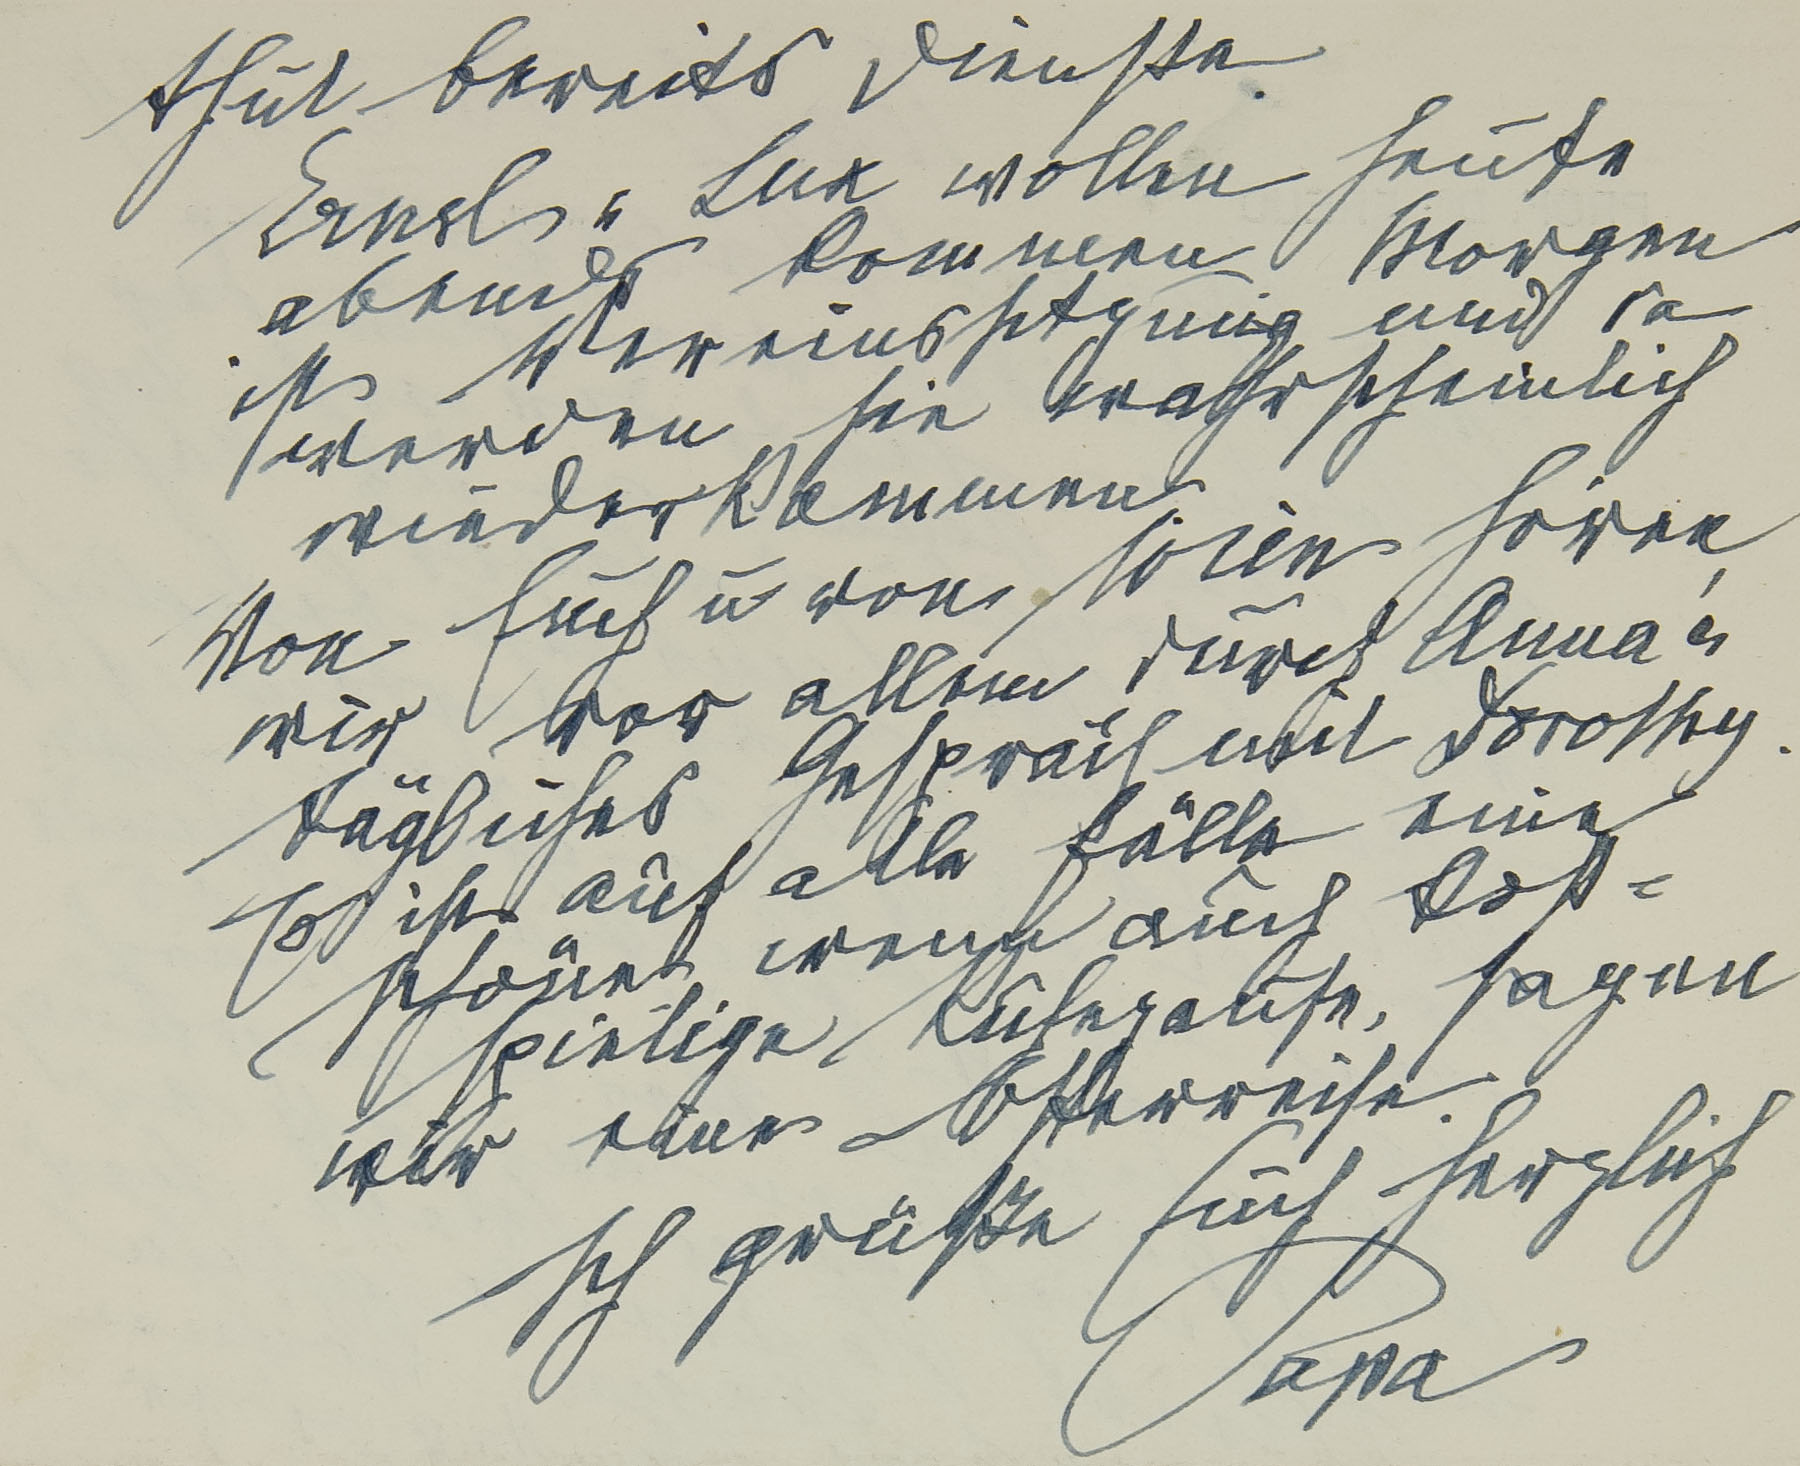 thut bereits Dienste.
Ernst u Lux wollen heute
abends kommen Morgen
ist Vereinssitzung und da
werden sie wahrscheinlich
wiederkommen
Von Euch u von hören
wir vor allem durch Anna's
tägliches Gespräch mit Dorothy.
Es ist auf alle Fälle eine
schöne wenn auch kost=
spielige Ruhepause, sagen
wir eine Osterreise.
Ich grüße Euch herzlich
Papa